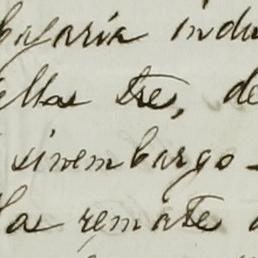 bajaría indu
ellas tre, de
sinembargo -
las remate a